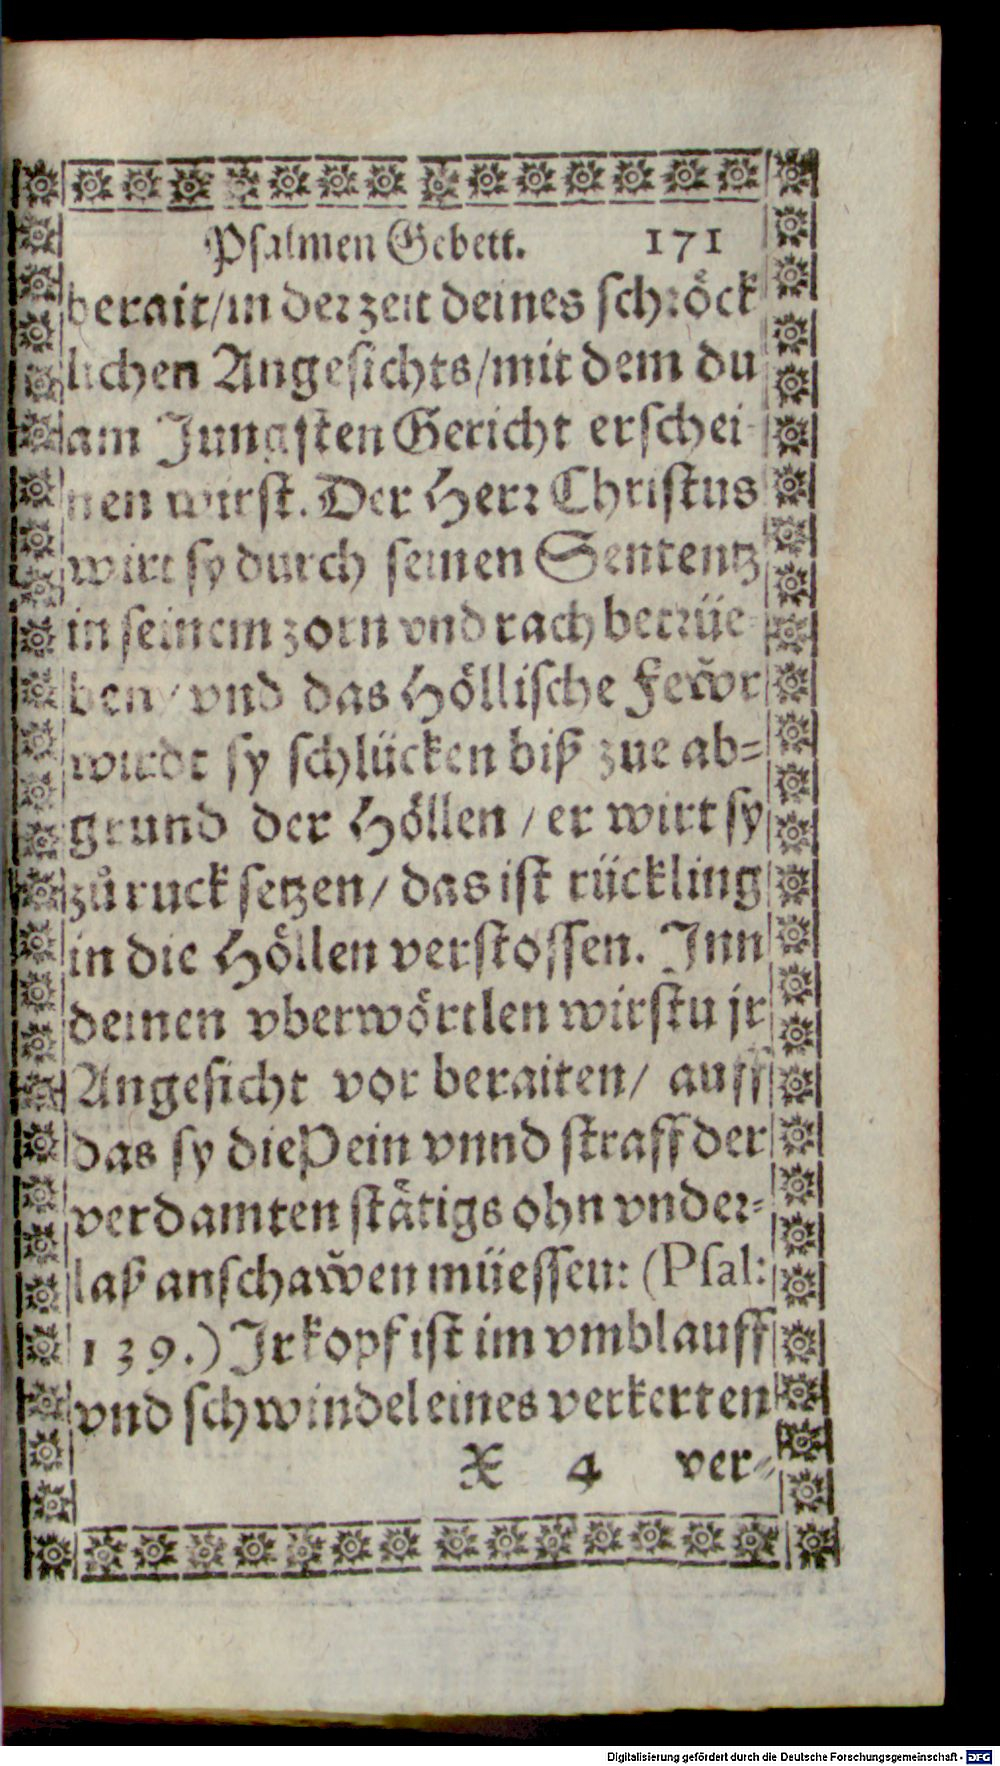 Psalmen Gebett. 171
berait/in der zeit deines schröck
lichen Angesichts/mit dem du
am Jungsten Gericht erschei-
nen wirst. Der Herr Christus
wirt sy durch seinen Sententz
in seinem zorn vnd rach betrüe-
ben/ vnd das Höllische Fewͤr
wirdt sy schlücken biß zue ab-
grund der Höllen / er wirt sy
zuͦ ruck setzen/ das ist rückling
in die Höllen verstossen. Jnn
deinen vberwörtlen wirstu jr
Angesicht vor beraiten/ auff
das sy die Pein vnnd straff der
verdamten staͤtigs ohn vnder-
laß anschawͤen müessen: (Psal:
139.) Jr kopf ist im vmblauff
vnd schwindel eines verkerten
X 4 ver-
Digitalisierung gefördert durch die Deutsche Forschungsgemeinschaft - DFG